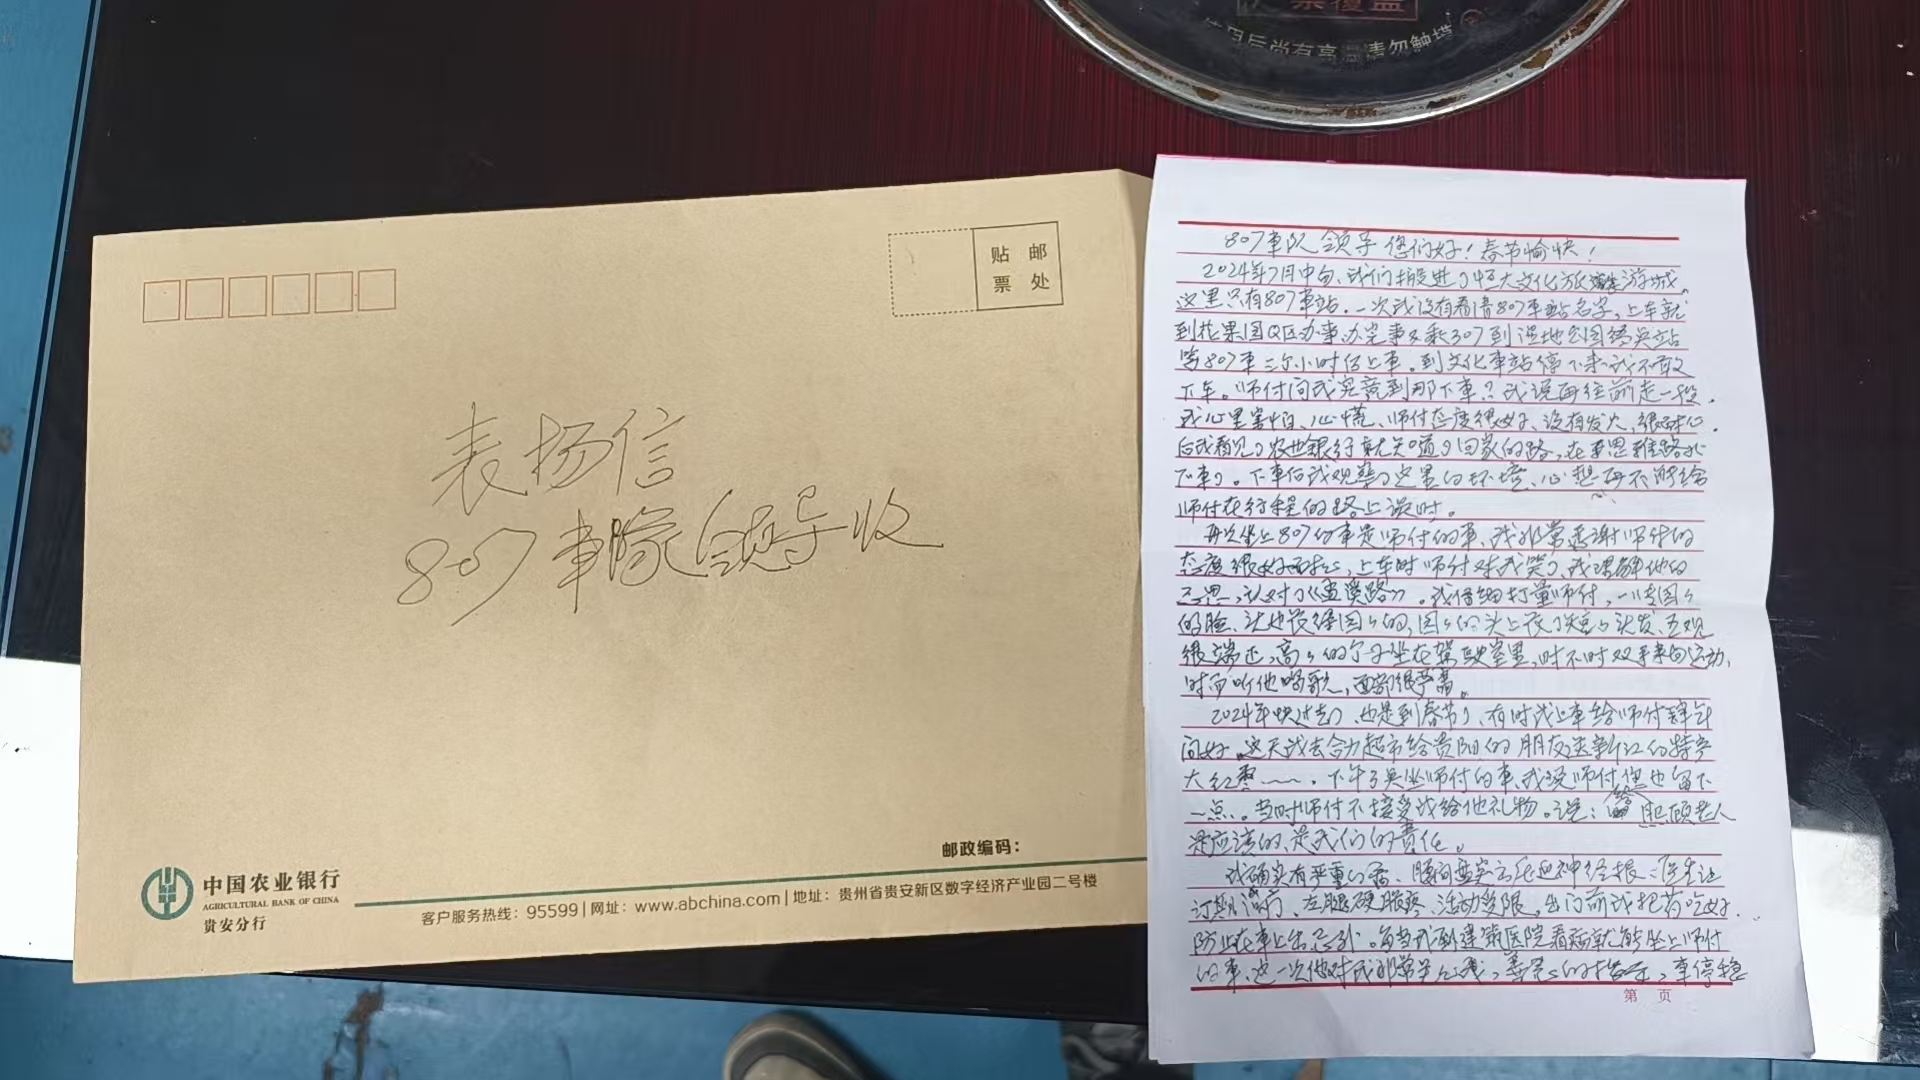 请勿触摸
贴 邮
票 处
表扬信
807车队领导收
邮政编码：
中国农业银行
AGRICULTURAL BANK OF CHINA
贵安分行
客户服务热线：95599 | 网址：www.abchina.com | 地址：贵州省贵安新区数字经济产业园二号楼
807车队领导您们好！春节愉快！
2024年7月中旬、我们搬进了恒大文化旅游城。
这里只有807车站。一次我没有看清807车站名字，上车就
到花果园Q区办事、办完事又乘307到湿地公园
807车三个小时上车。到文化车站停下来我不敢
下车。师付问我究竟到那下车？我说再往前走一段。
我心里害怕、心慌、师付态度很好、没有发火、很耐心。
后我看见了农业银行就知道了回家的路，在路
下车了。下车后我观察了这里的环境、心想再不能给
师付在行程的路上误时。
再次坐上807的车是师付的车、我非常感谢师付的
态度很好，上车时师付对我笑了，我理解他的
。我仔细打量师付，一张园园
的脸、园园的头上夜了短短头发、五观
很端正、高高的个子坐在驾驶室里，时不时双手来回运动，
时而听他唱歌，面部很严肃。
2024年快过去了、也是到春节了、有时我上车给师付拜年
问好。这天我去合力超市给贵阳的朋友送新江的特产
大红枣。下午了又坐师付的车、我说师付您也留下
一点。当时师付不接受我给他礼物。说：照顾老人
是应该的、是我们的责任。
我确实有严重的病、腰间盘突出压迫神经根
订期治疗、左腿硬胀疼、活动受限，出门前我把药吃好
防止在车上出。每当我到医院看病就能坐上师付
的车、这一次他对我非常关心我，的指示，车停稳
第 页